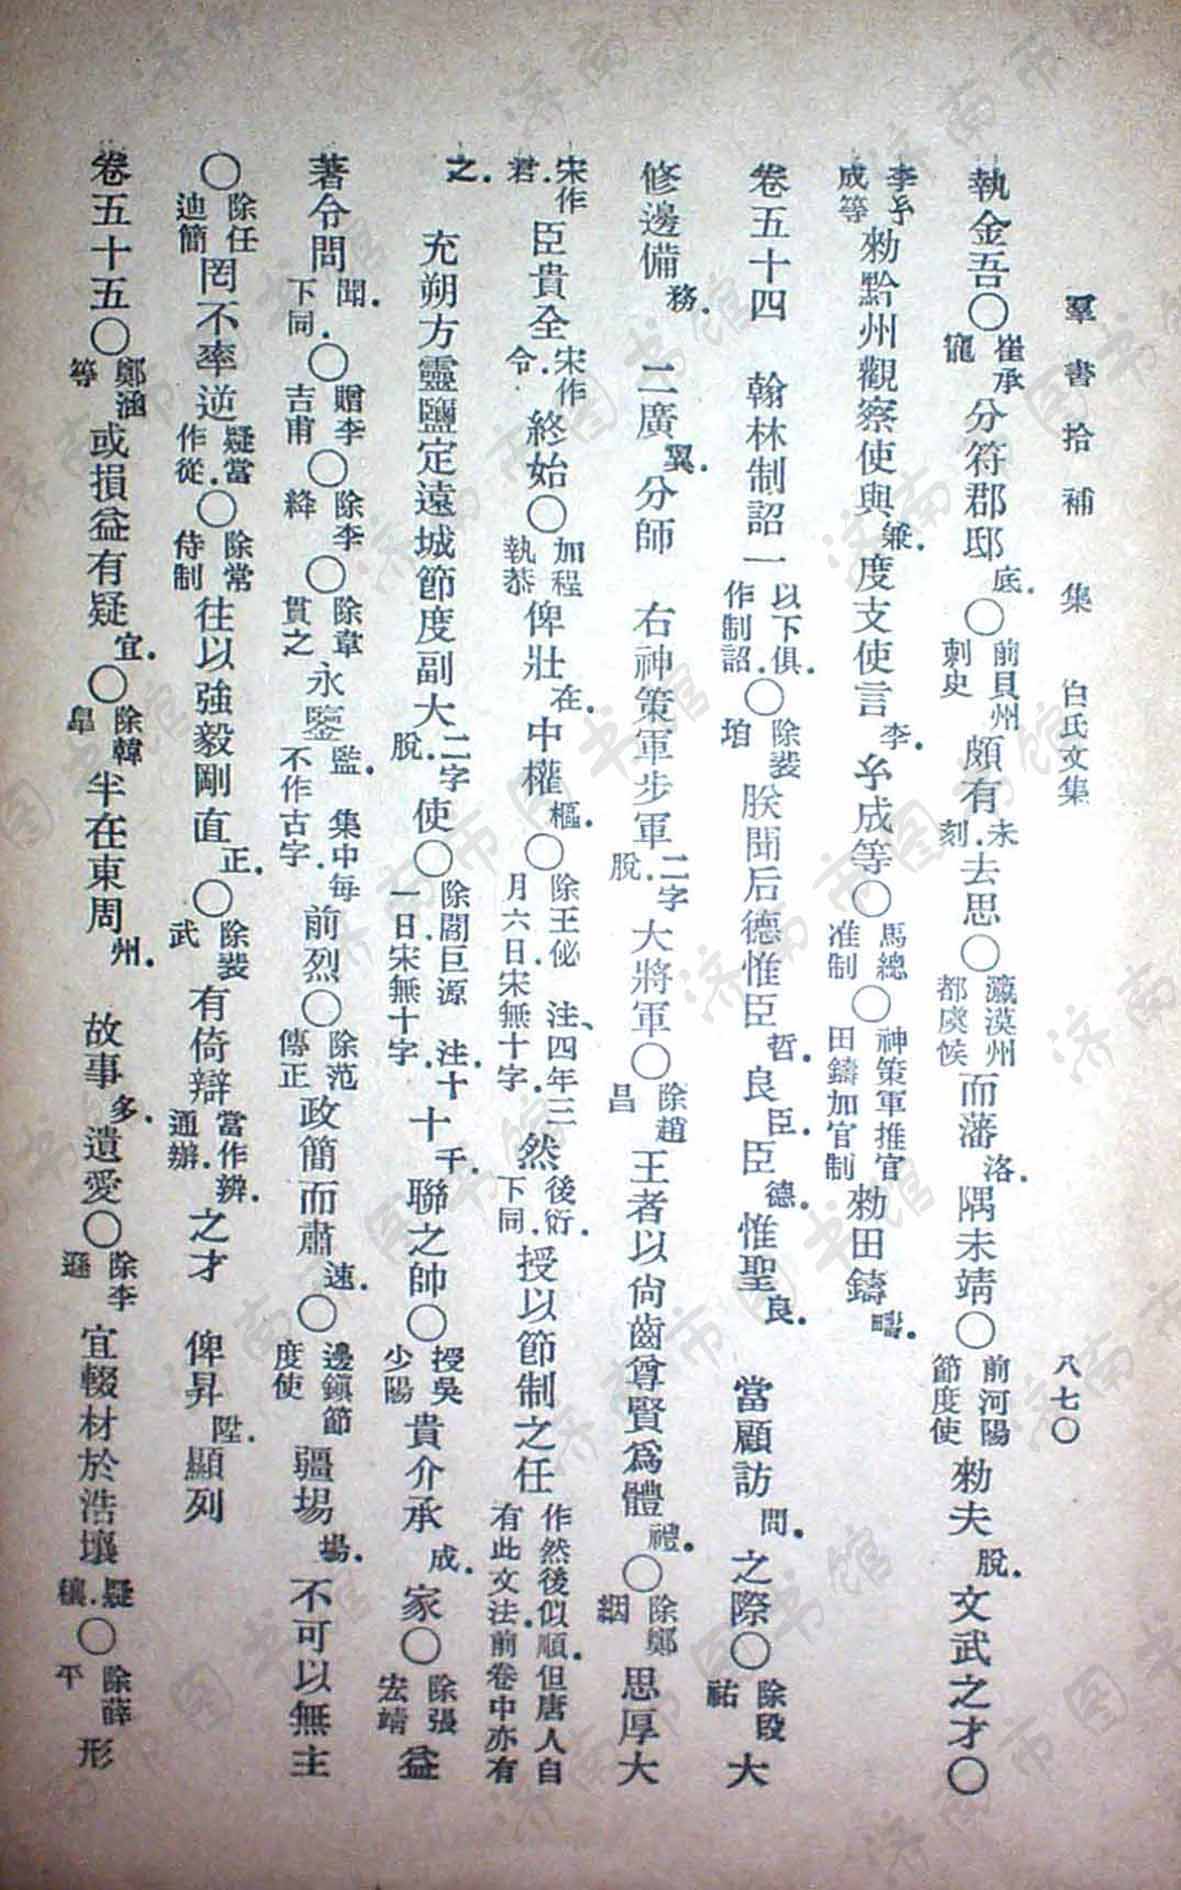 羣書拾補　集　白氏文集　八七〇
執金吾〇崔承寵分符郡邸底〇前貝州刺史頗有未刻去思〇瀛漠州都虞候而藩洛隅未靖〇前河陽節度使勑夫脫文武之才〇
李𢒰成等勑黔州觀察使與兼度支使言李𢒰成等〇馬總准制〇神策軍推官田鑄加官制勑田鑄疇
卷五十四　翰林制詔一以下俱作制詔〇除裴垍朕聞后德惟臣哲良臣臣德惟聖良　當顧訪問之際〇除段祐大
修邊備務　二廣翼分師　右神策軍步軍二字脫大將軍〇除趙昌王者以尙齒尊賢爲體禮〇除鄭絪思厚大
宋作君臣貴全宋作令終始〇加程執恭俾壯在中權樞〇除王佖　注、四年三月六日宋無十字然後衍下同授以節制之任作然後似順但唐人自有此文法前卷中亦有
之　充朔方靈鹽定遠城節度副大二字脫使〇除閻巨源　注十一日宋無十字十千聯之帥〇授吳少陽貴介承成家〇除張宏靖益
著令問聞下同〇贈李吉甫〇除李絳〇除韋貫之永鑒監　集中每不作古字前烈〇除范傳正政簡而肅速〇邊鎭節度使疆埸場不可以無主
〇除任迪簡罔不率逆疑當作從〇除常侍制往以強毅剛直正〇除裴武有倚辯當作辨通辦之才　俾昇陞顯列
卷五十五〇鄭涵等或損益有疑宜〇除韓皐半在東周州　故事多遺愛〇除李遜宜輟材於浩壤疑穰〇除薛平形